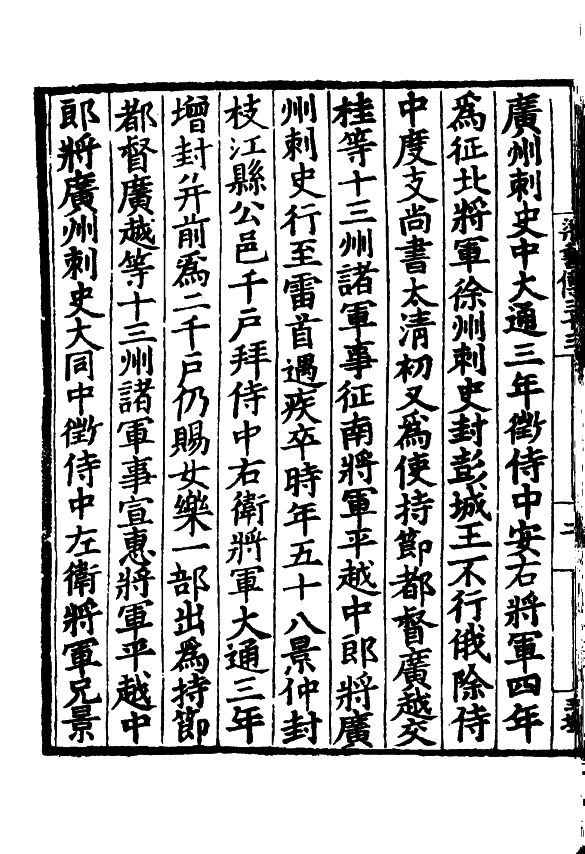 廣州刺史中大通三年徵侍中安右將軍四年
爲征北將軍徐州刺史封彭城王不行俄除侍
中度支尚書太清初又爲使持節都督廣越交
桂等十三州諸軍事征南將軍平越中郎將廣
州刺史行至雷首遇疾卒時年五十八景仲封
枝江縣公邑千戶拜侍中右衛將軍大通三年
增封并前爲二千戶仍賜女樂一部出爲持節
都督廣越等十三州諸軍事宣惠將軍平越中
郎將廣州刺史大同中徵侍中左衛將軍兄景